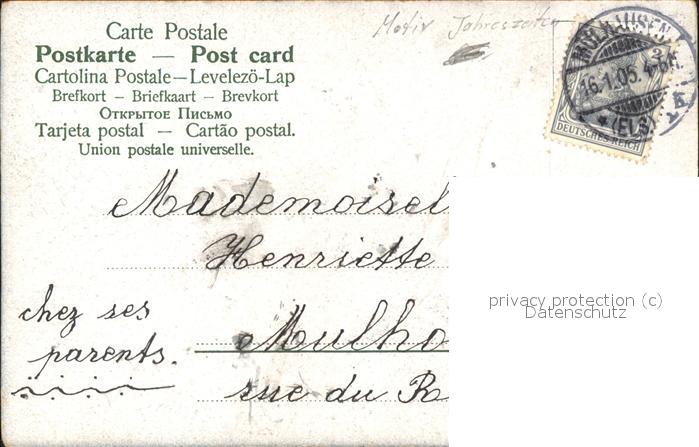 Carte Postale
Postkarte — Post card
Cartolina Postale — Levelezö-Lap
Brefkort — Briefkaart — Brevkort
Открытое Письмо
Tarjeta postal — Cartão postal.
Union postale universelle.
Motiv Jahreszeiten
MÜLHAUSEN
16.1.05. 4-5N.
* (ELS)
DEUTSCHES REICH
Mademoisel
Henriette
chez ses
parents.
Mulho
rue du R
privacy protection (c)
Datenschutz